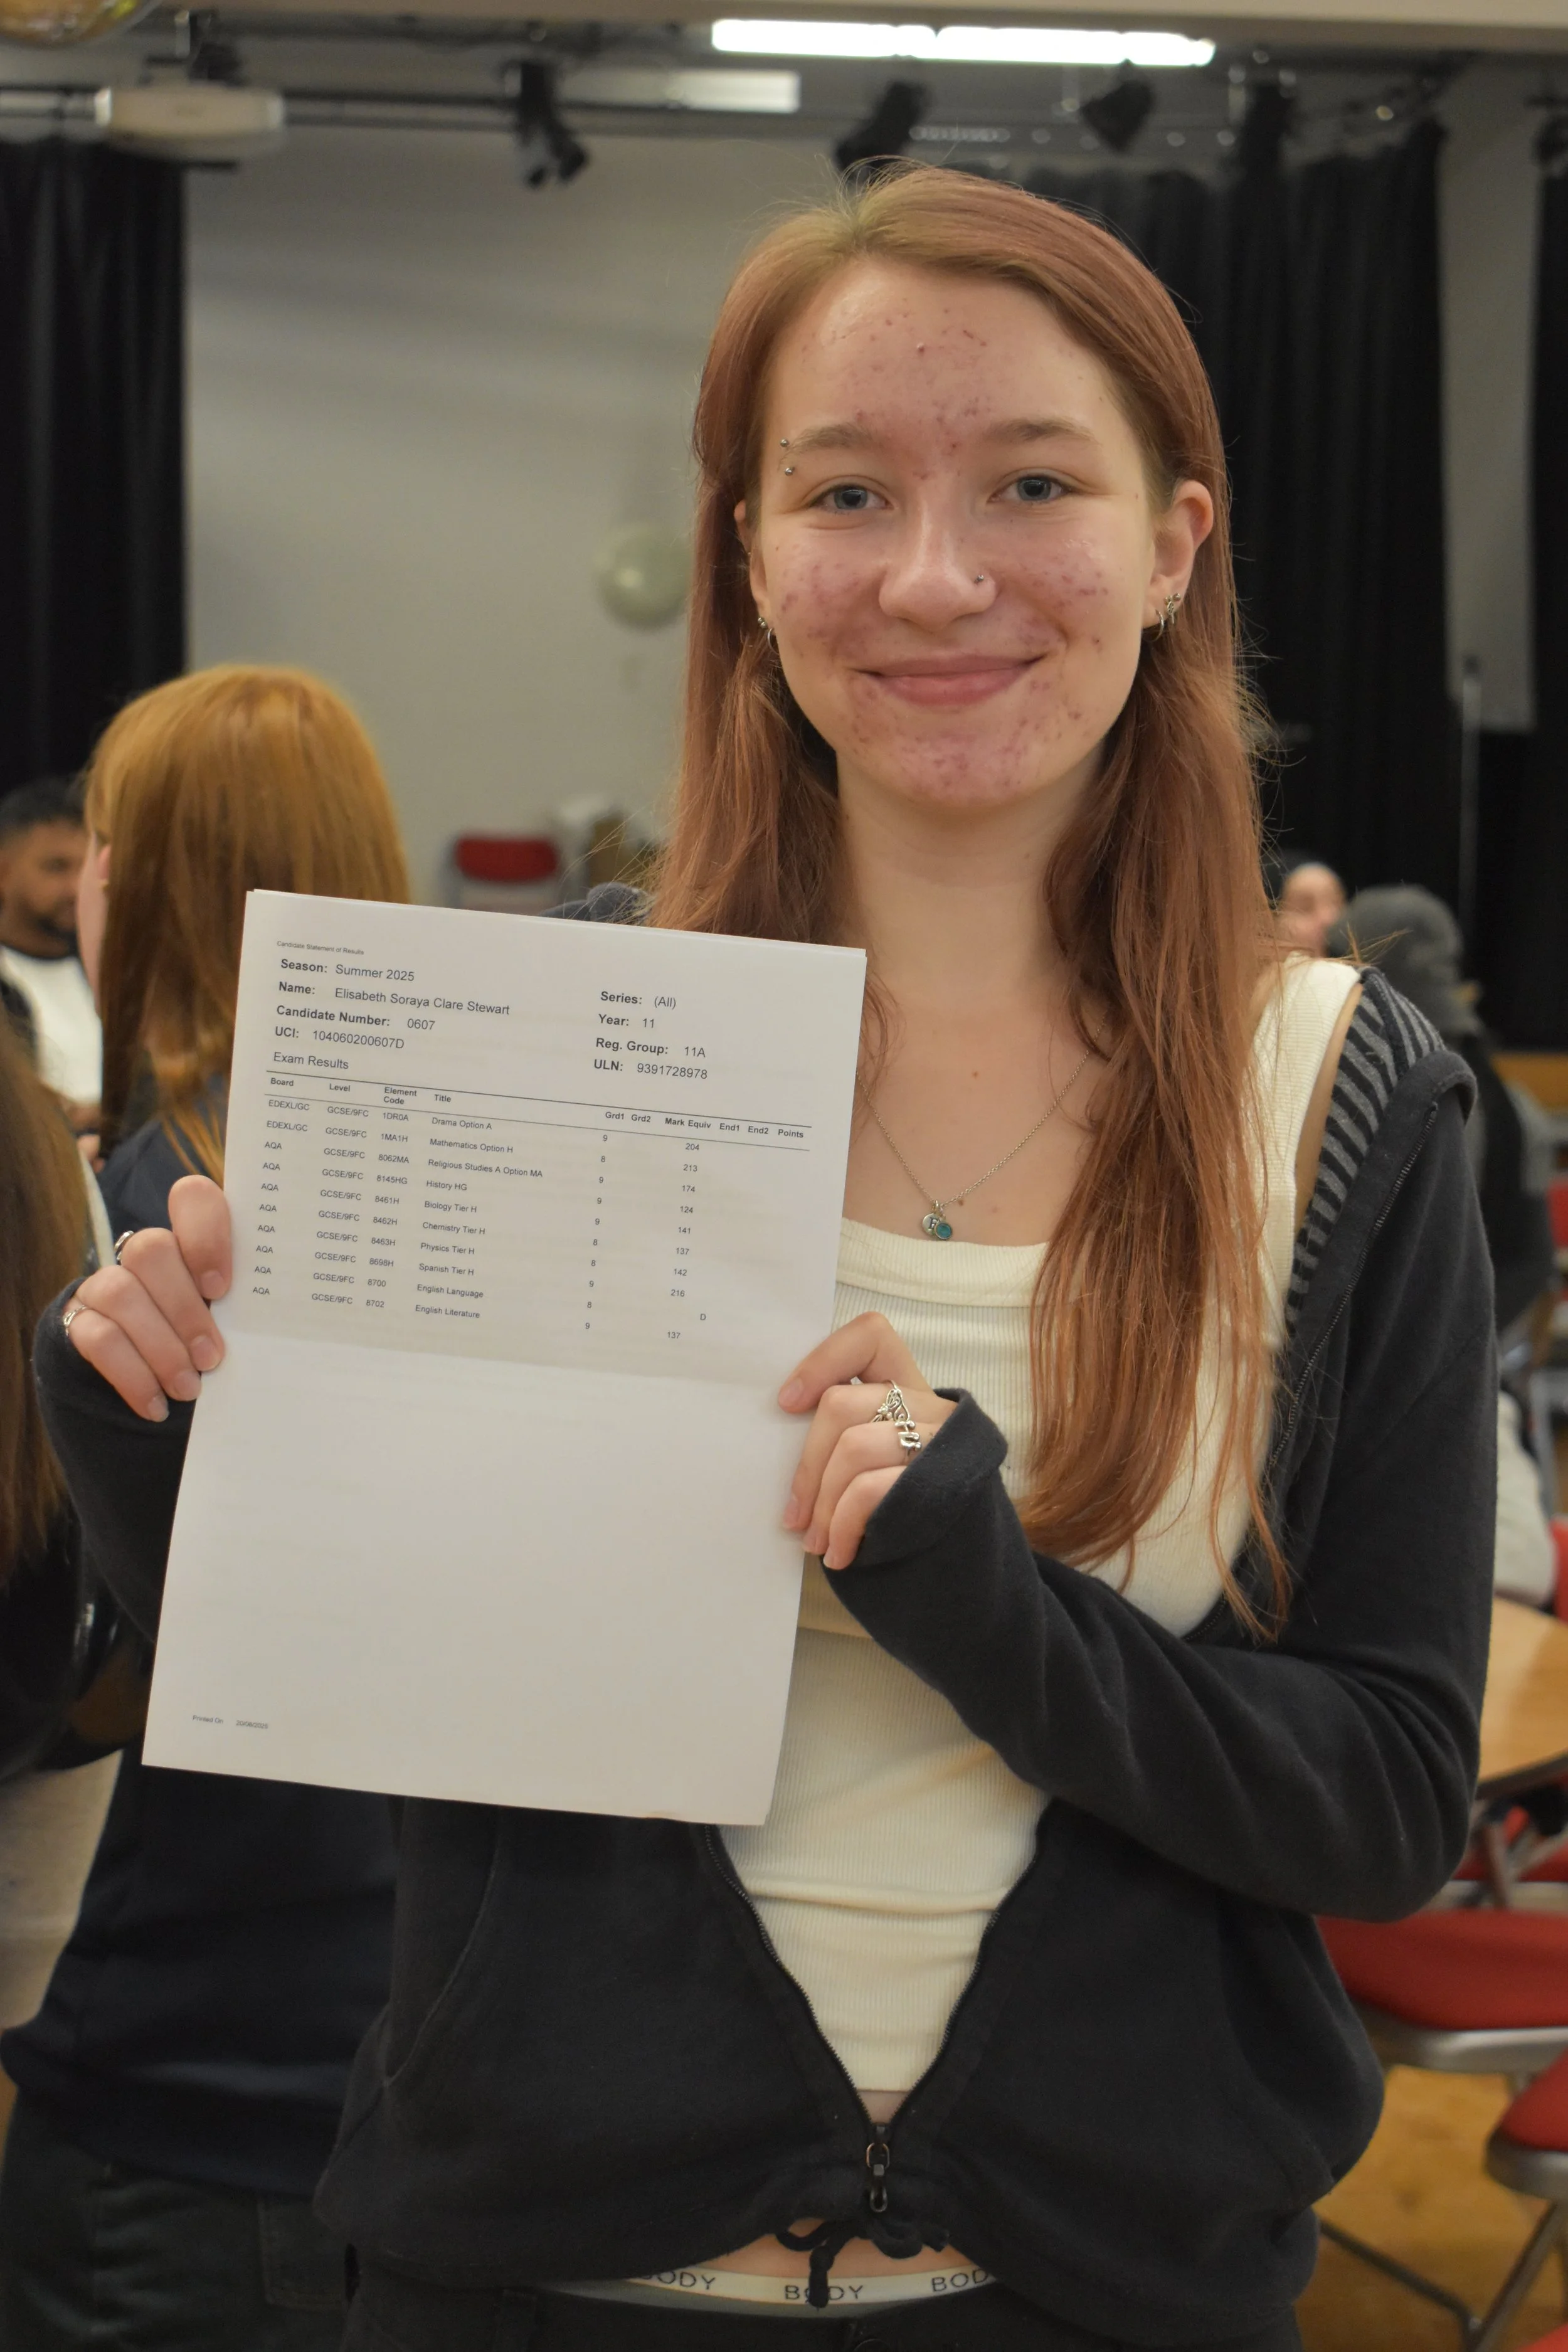 Candidate Statement of Results
Season: Summer 2025
Name: Elisabeth Soraya Clare Stewart
Candidate Number: 0607
UCI: 104060200607D
Series: (All)
Year: 11
Reg. Group: 11A
ULN: 9391728978
Exam Results
Board Level Element Code Title Grd1 Grd2 Mark Equiv End1 End2 Points
EDEXL/GC GCSE/9FC 1DR0A Drama Option A 9 204
EDEXL/GC GCSE/9FC 1MA1H Mathematics Option H 8 213
AQA GCSE/9FC 8062MA Religious Studies A Option MA 9 174
AQA GCSE/9FC 8145HG History HG 9 124
AQA GCSE/9FC 8461H Biology Tier H 9 141
AQA GCSE/9FC 8462H Chemistry Tier H 8 137
AQA GCSE/9FC 8463H Physics Tier H 8 142
AQA GCSE/9FC 8698H Spanish Tier H 9 216
AQA GCSE/9FC 8700 English Language 8 D
AQA GCSE/9FC 8702 English Literature 9 137
Printed On 20/08/2025
BODY BODY BOD